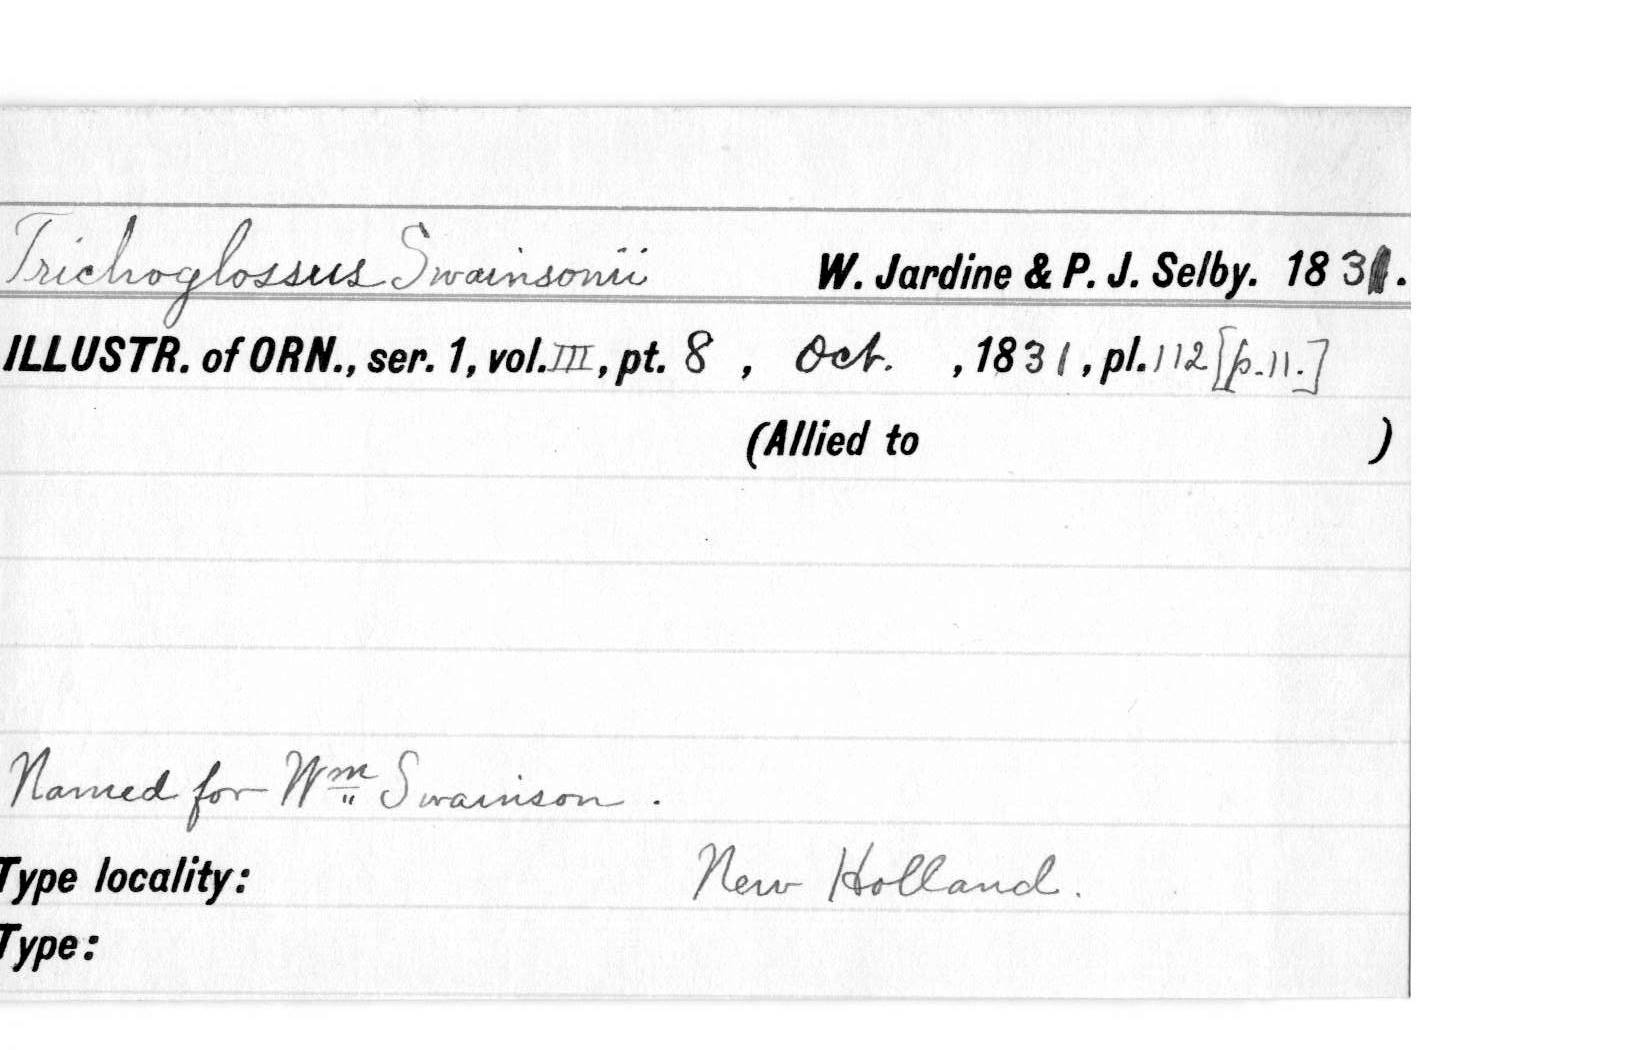 Trichoglossus Swainsonii W. Jardine & P. J. Selby. 1831.
ILLUSTR. of ORN., ser. 1, vol. III, pt. 8 , Oct. , 1831, pl. 112 [p. 11.]
(Allied to )
Named for Wm Swainson .
Type locality: New Holland.
Type: